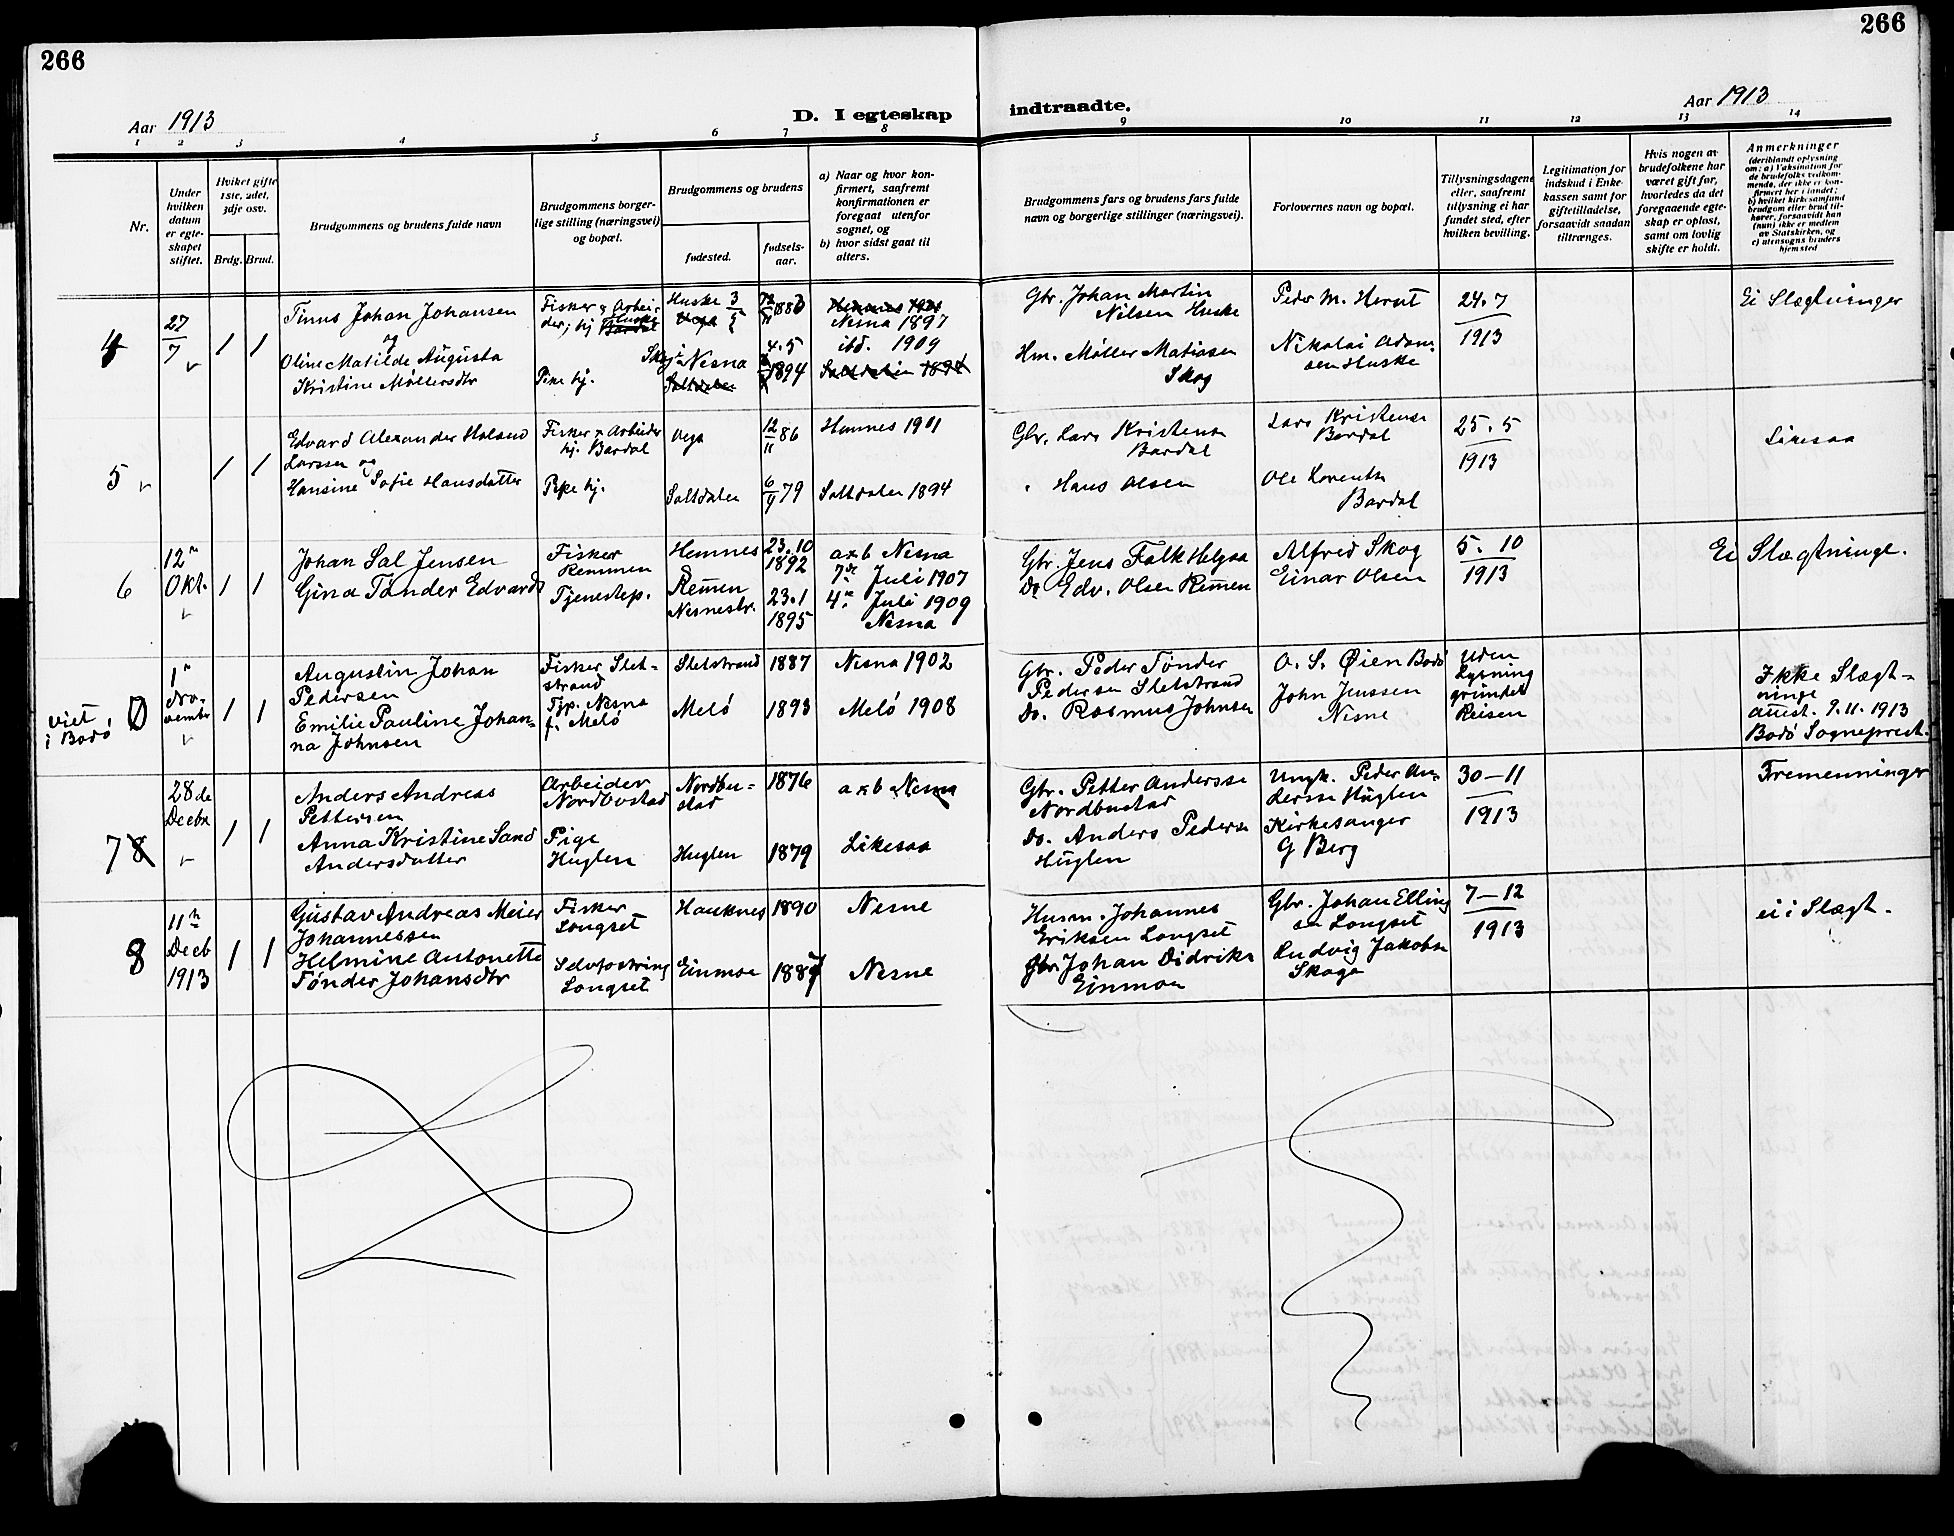 266
266
Aar 1913
D. I egteskap
indtraadte.
Aar 1913
1 2 3 4 5 6 7 8 9 10 11 12 13 14
Nr.
Under hvilken datum er egteskapet stiftet.
Hvilket gifte 1ste, 2det, 3dje osv.
Brdg. Brud.
Brudgommens og brudens fulde navn
Brudgommens borgerlige stilling (næringsvei) og bopæl.
Brudgommens og brudens
fødested.
fødselsaar.
a) Naar og hvor konfirmert, saafremt konfirmationen er foregaat utenfor sognet, og
b) hvor sidst gaat til alters.
Brudgommens fars og brudens fars fulde navn og borgerlige stillinger (næringsvei).
Forlovernes navn og bopæl.
Tillysningsdagene eller, saafremt tillysning ei har fundet sted, efter hvilken bevilling.
Legitimation for indskud i Enkekassen samt for giftetilladelse, forsaavidt saadan tiltrænges.
Hvis nogen av brudefolkene har været gift før, hvorledes da det foregaaende egteskap er opløst, samt om lovlig skifte er holdt.
Anmerkninger
(deriblandt oplysning om: a) Vaksination for de brudefolks vedkommende, der ikke er konfirmert her i landet; b) hvilket kirkesamfund brudgom eller brud tilhører, forsaavidt han (hun) ikke er medlem av Statskirken, og c) utensogns bruders hjemsted
4
27/7
1 1
Tinus Johan Johansen
og
Oline Matilde Augusta
Kristine Møllersdtr
Fisker & Arbei-
der, hj Huske
Bardal
Pike hj.
Huske
Vega
Nesna
Saltdalen
4.5
1894
Hemnes 1901
Nesna 1897
ibd. 1909
Saltdalen 1894
Gbr. Johan Martin
Nilsen Huske
Hm. Møller Matiasen
Skog
Peder M.
Nikolai Adam-
sen Huske
24.7
1913
Ei Slægtninger
5
1 1
Edvard Alexander Holsend
Larsen og
Hansine Sofie Hansdatter
Fisker & Arbeider
hj. Bardal
Pike hj.
Vega
Saltdalen
12/11 86
6/9 79
Hemnes 1901
Saltdalen 1894
Gbr. Lars Kristensen
Bardal
Hans Olsen
Lars Kristensen
Bardal
Ole Lorentsen
Bardal
25.5
1913
Likesaa
6
12te
Okt.
1 1
Johan Sal Jensen
Gina Tønder Edvards
Fisker
Remmen
Tjenestep.
Hemnes
Remmen
Nesnestr.
23.10
1892
23.1
1895
a & b Nesna
7de Juli 1907
4de Juli 1909
Nesna
Gbr. Jens Falk Helgaa
Do. Edv. Olsen Remmen
Alfred Skog
Einar Olsen
5. 10
1913
Ei Slægtninge.
viet i Bodø
0
1ste
No-
vember
1 1
Augustin Johan
Pedersen
Emilie Pauline Johan-
na Johnsen
Fisker Slet-
strand
Tjp. Nesna
f. Melø
Sletstrand
Melø
1887
1893
Nesna 1902
Melø 1908
Gbr. Peder Tønder
Pedersen Sletstrand
Do. Rasmus Johnsen
O. S. Øien Bodø
John Jenssen
Nesne
Uden
Lysning
grundet
Reisen
Ikke Slægt-
ninge
attest. 9.11.1913
Bodø Sogneprest.
7 8
28de
Decbr
1 1
Anders Andreas
Pettersen
Anna Kristine Sand
Andersdatter
Arbeider
Nordbustad
Pige
Huglen
Nordbu-
stad
Huglen
1876
1879
a & b Nesna
Likesaa
Gbr. Petter Anderssen
Nordbustad
Do. Anders Pedersen
Huglen
Ungk. Peder An-
dersen Huglen
Kirkesanger
G Berg
30-11
1913
Fremenninger
8
11te
Decb
1913
1 1
Gustav Andreas Meier
Johannessen
Helmine Antonette
Tønder Johansdtr
Fisker
Longset
Selvfostring
Longset
Hauknes
Einmoe
1890
1887
Nesne
Nesne
Husm. Johannes
Eriksen Longset
Gbr. Johan Didriks
Einmoen
Gbr. Johan Elling
sen Longset
Ludvig Jakobsen
Skoga
7-12
1913
ei i Slægt.